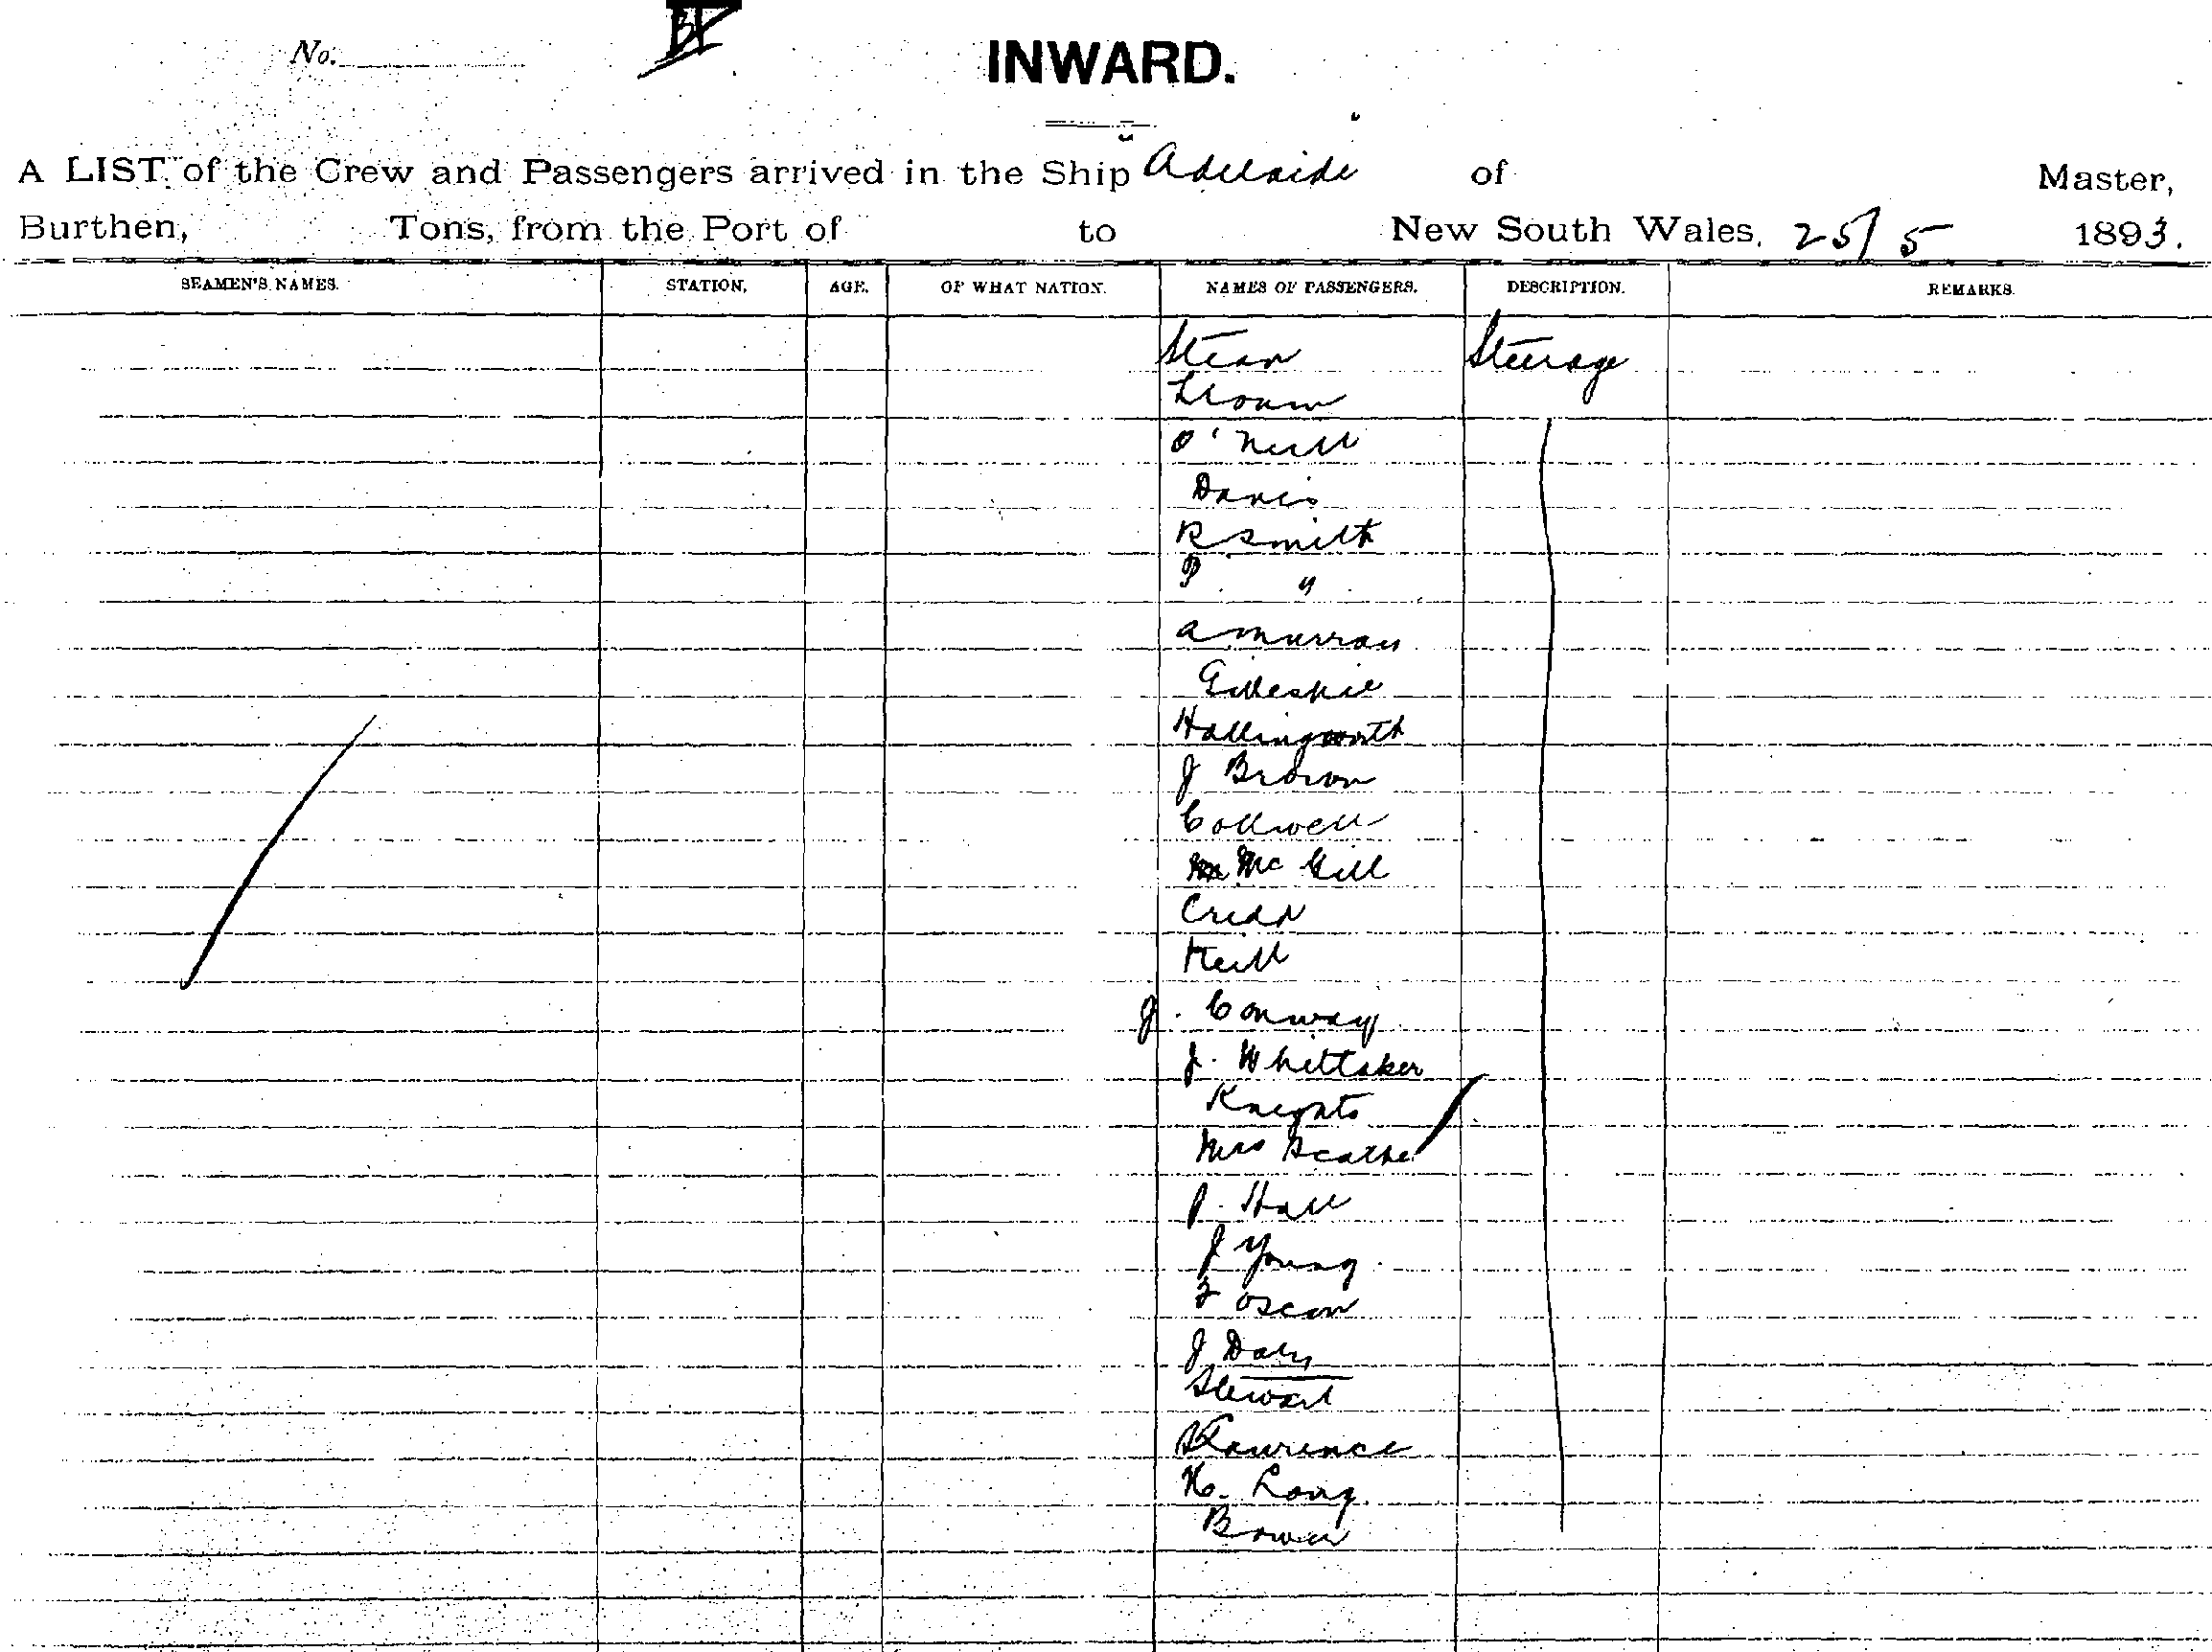 No.
INWARD.
A LIST of the Crew and Passengers arrived in the Ship Adelaide of Master,
Burthen, Tons, from the Port of to New South Wales, 25/5 1893.
SEAMEN'S NAMES. STATION. AGE. OF WHAT NATION. NAMES OF PASSENGERS. DESCRIPTION. REMARKS.
Steerage
O'Neill
Davis
R Smith
P "
A Murray
Gillespie
Hallingworth
J Brown
Collwell
McGill
Neill
J. Conway
J. Whittaker
Knights
Mrs
P. Hall
J Young
J Daly
Stewart
Lawrence
H. Long
Bower